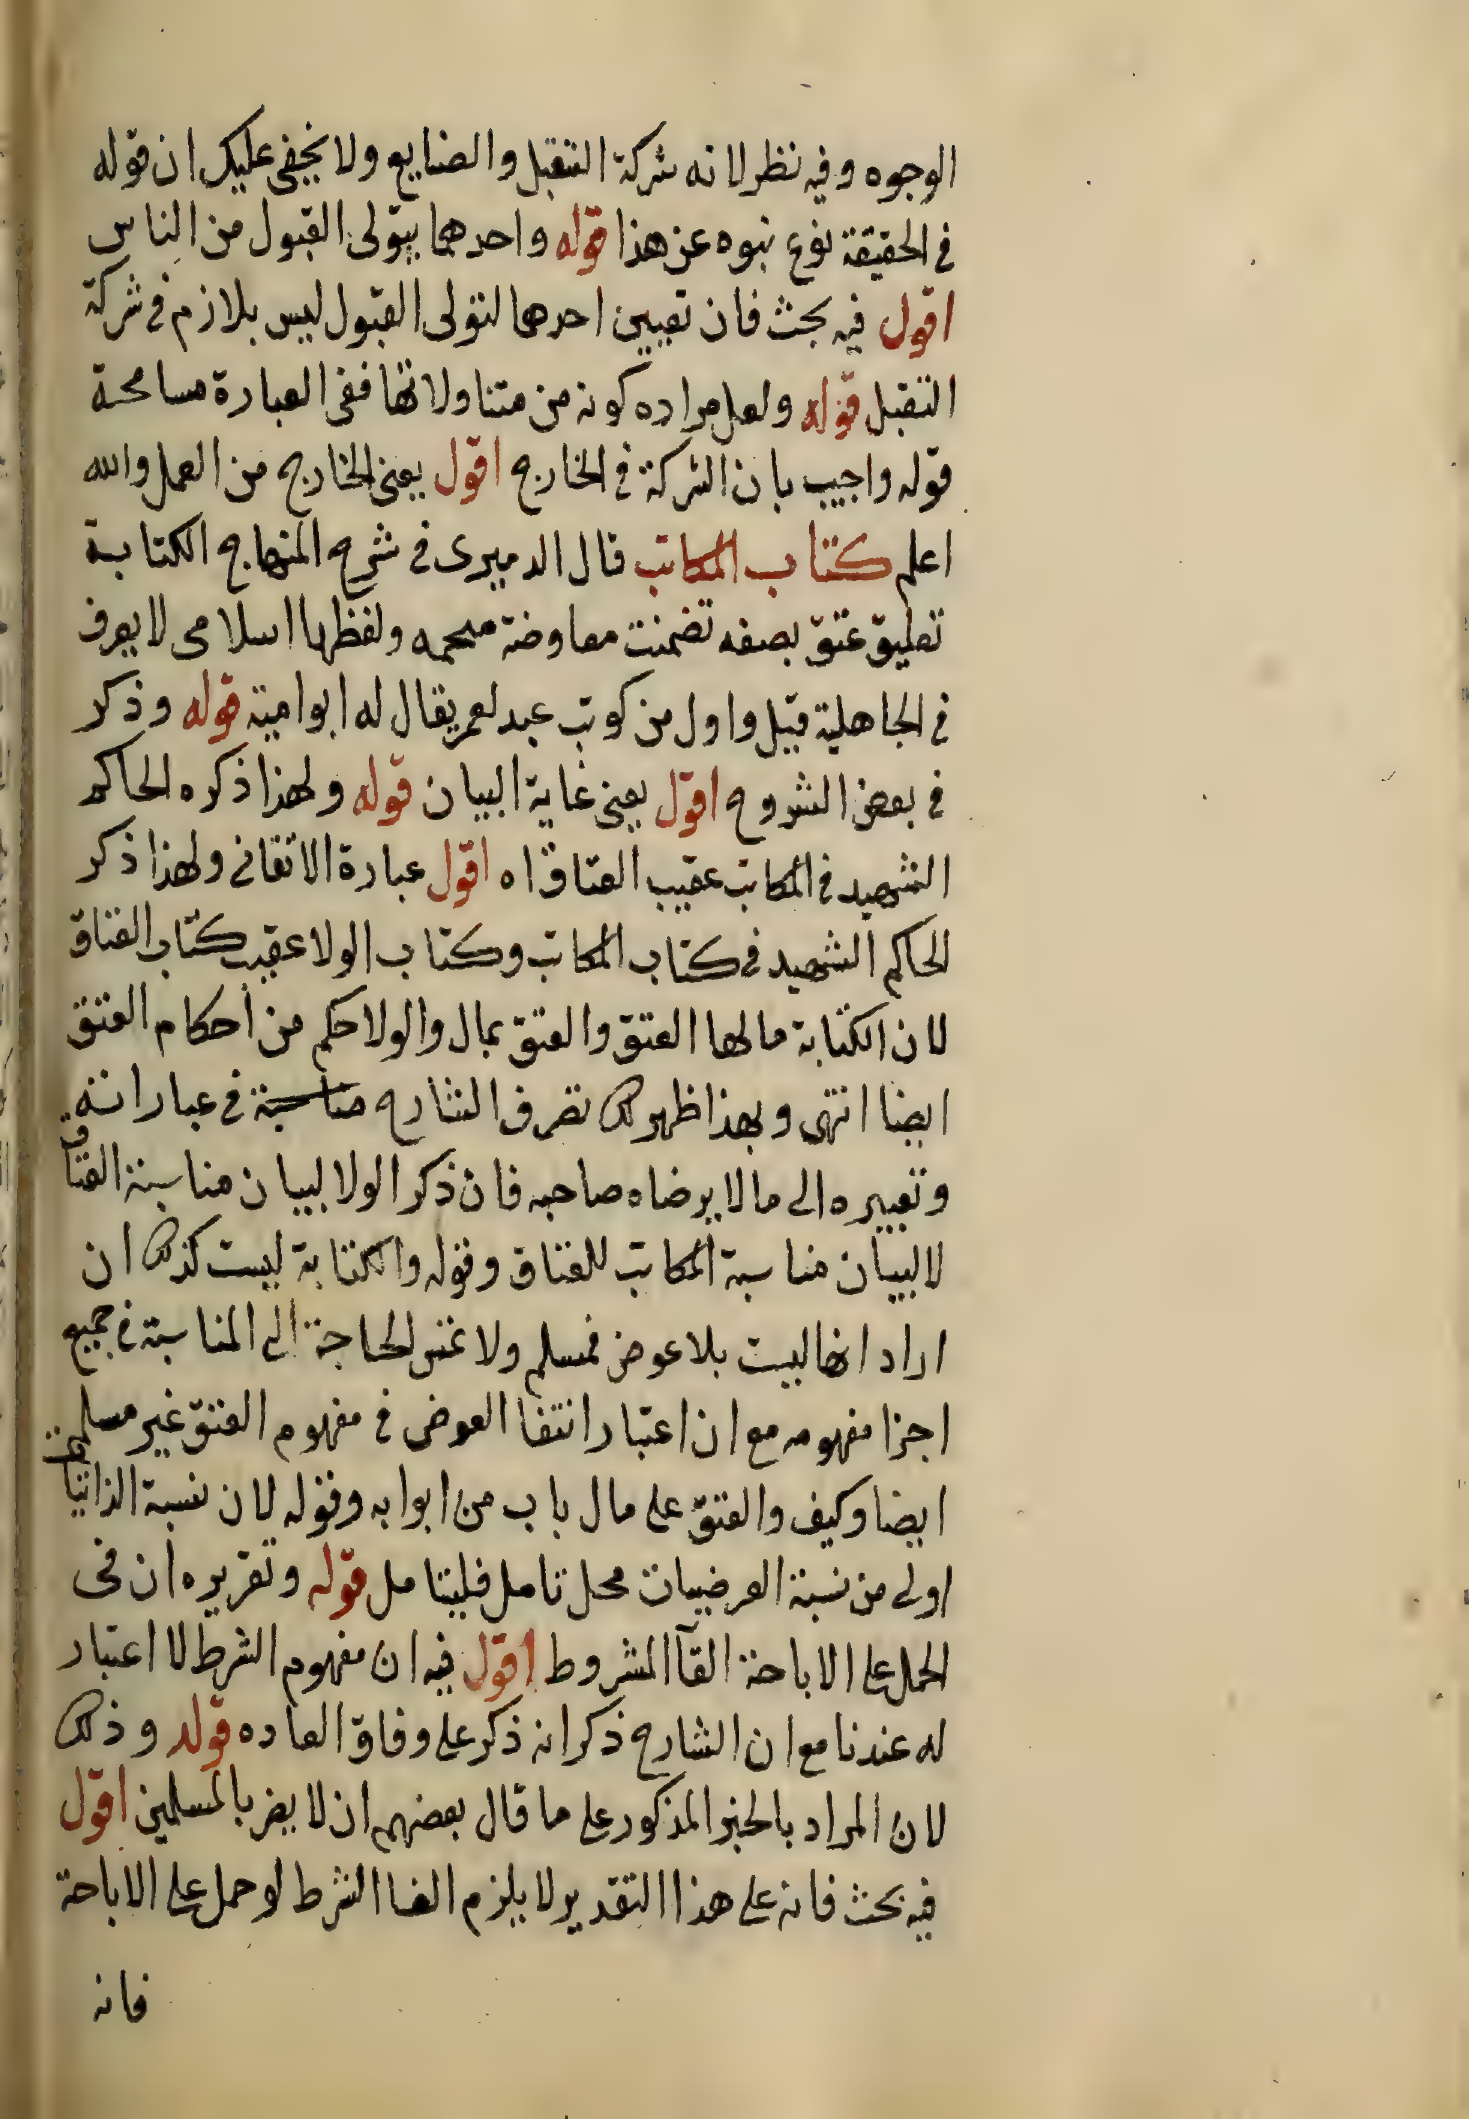 الوجوه وفيه نظر لانه شركة التقبل والصنايع ولا يخفى عليك ان قوله
في الحقيقة نوع نبوه عن هذا قوله واحدهما يتولى القبول من الناس
اقول فيه بحث فان تعيين احدهما لتولى القبول ليس بلازم في شركة
التقبل قوله ولعل مراده كونه من متناولاتها ففى العبارة مسامحة
قوله واجيب بان الشركة في الخارج اقول يعنى الخارج من العمل والله
اعلم كتاب المكاتب قال الدميرى في شرح المنهاج الكتابة
تعليق عتق بصفه تضمنت معاوضة ولفظها اسلامى لا يعرف
في الجاهلية قيل واول من كوتب عبد لعمر يقال له ابو امية قوله وذكر
في بعض الشروح اقول يعنى غاية البيان قوله ولهذا ذكره الحاكم
الشهيد في المكاتب عقيب العتاق اه اقول عبارة الاتقانى ولهذا ذكر
الحاكم الشهيد في كتاب المكاتب وكتاب الولا عقيب كتاب العتاق
لان الكتابة مالها العتق والعتق بمال والولا حكم من احكام العتق
ايضا انتهى وبهذا ظهر لك تصرف الشارح في عباراته
وتغييره الى ما لا يرضاه صاحبه فان ذكر الولا لبيان مناسبته العتاق
لا لبيان مناسبة المكاتب للعتاق وقوله والكتابة ليست كذلك ان
اراد انها ليست بلا عوض فمسلم ولا نمس الحاجة الى المناسبة في جميع
اجزا مفهومه مع ان اعتبار انتفا العوض في مفهوم العتق غير مسلم
ايضا وكيف والعتق على مال باب من ابوابه وقوله لان نسبة الذاتيات
اولى من نسبة العرضيات محل تامل فليتامل قوله وتقريره ان في
الحمل على الاباحة القآ المشروط اقول فيه ان مفهوم الشرط لا اعتبار
له عندنا مع ان الشارح ذكر انه ذكر على وفاق العاده قوله وذلك
لان المراد بالخير المذكور على ما قال بعضهم ان لا يضر بالمسلمين اقول
فيه بحث فانه على هذا التقدير لا يلزم الغا الشرط لو حمل على الاباحة
فانه